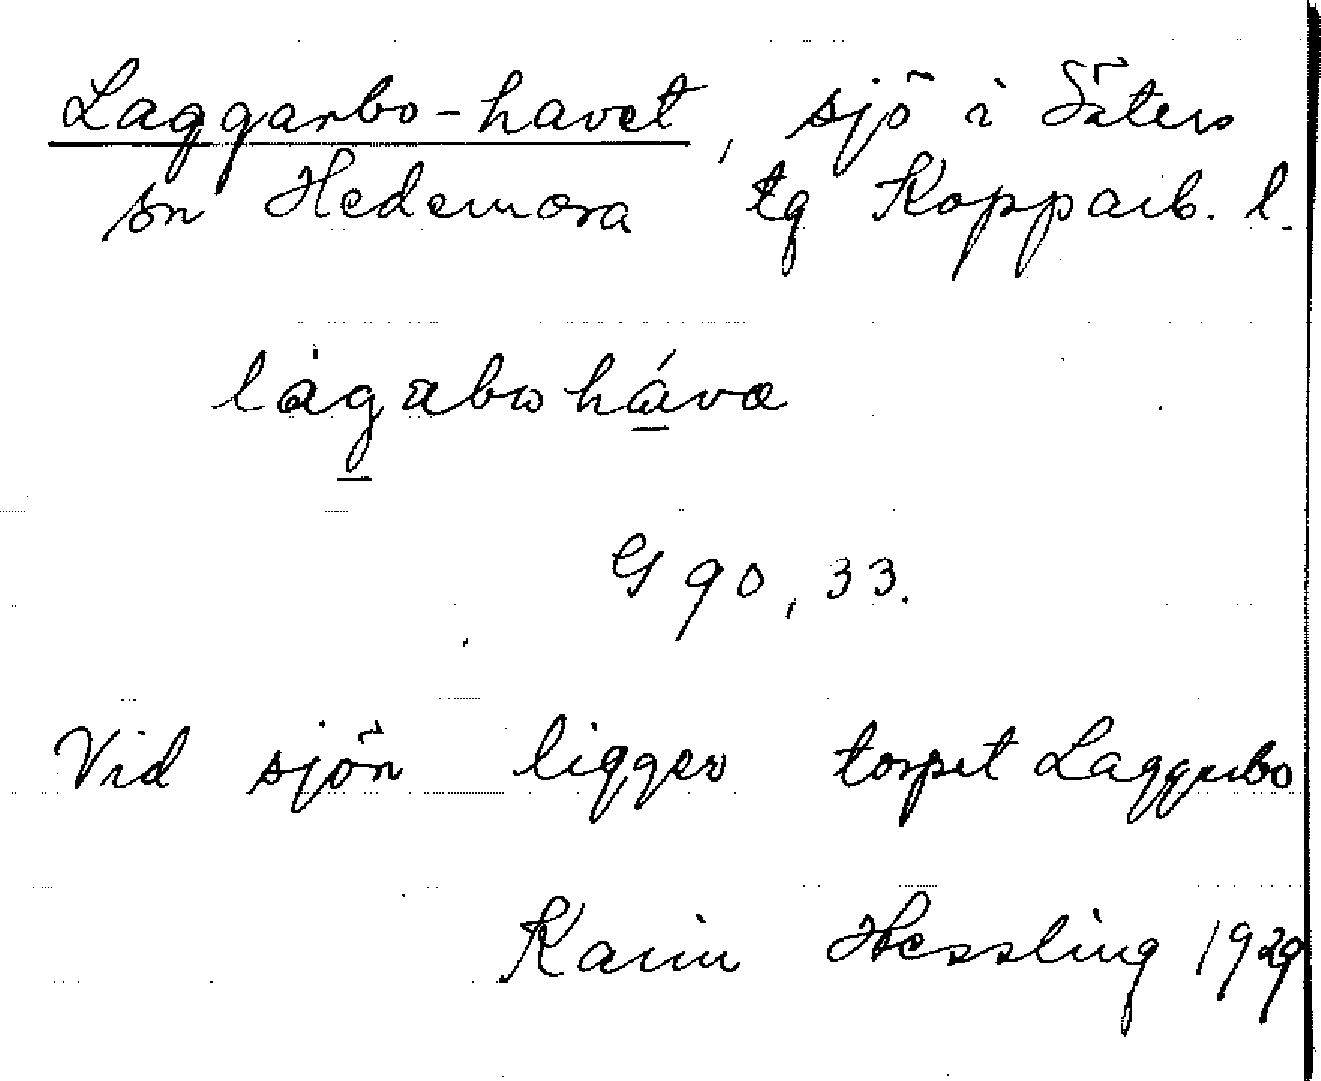 Laggarbo-havet, sjö i Säters
sn Hedemora tg Kopparb. l.
làgaboháva
G 90, 33.
Vid sjön ligger torpet Laggarbo
Karin Hessling 1929